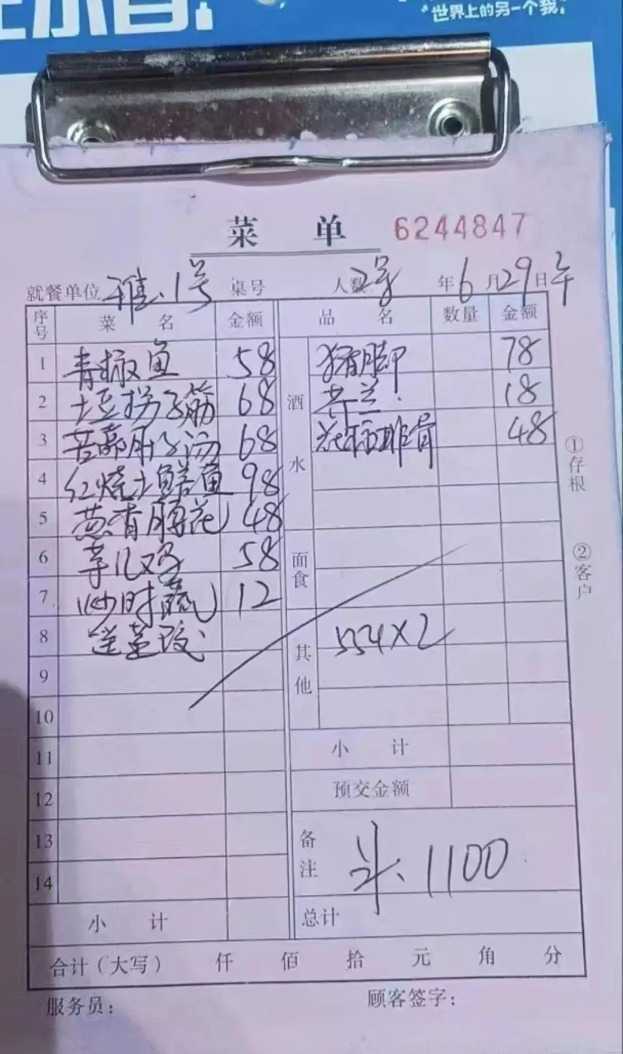 世界上的另一个我
菜 单 6244847
就餐单位 雅.1号 桌号 人数 2号 年 6 月 29 日 午
序号 菜 名 金额 品 名 数量 金额
1 青椒鱼 58 酒水 猪脚 78
2 土豆拐子筋 68 芥兰 18
3 肚子汤 68 排骨 48
4 红烧土鳝鱼 98
5 葱香腰花 48
6 鸡 58 面食
7 炒时蔬 12
8 送 其他 554×2
9
10
11 小 计
12 预交金额
13 备注 1100
14
小 计 总计
合计(大写) 仟 佰 拾 元 角 分
服务员: 顾客签字:
①存根
②客户